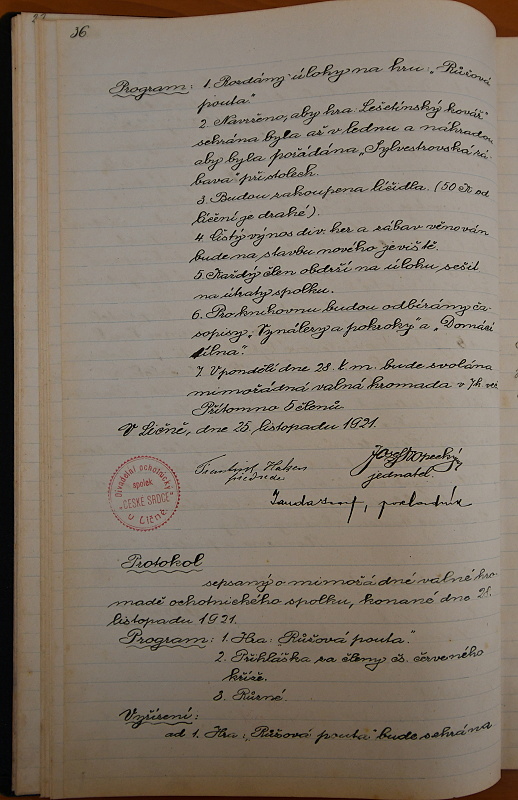 36
Program: 1. Rozdány úlohy na hru: „Růžová
pouta."
2. Navrženo, aby hra: Lešetínský kovář"
sehrána byla až v lednu a náhradou
aby byla pořádána „Sylvestrovská zá-
bava" při stolech.
3. Budou zakoupena líčidla. (50 K od
líčení je drahé).
4. Čistý výnos div. her a zábav věnován
bude na stavbu nového jeviště.
5. Každý člen obdrží na úlohu sešit
na útraty spolku.
6. Pro knihovnu budou odbírány ča-
sopisy: „Vynálezy a pokroky" a „Domácí
dílna".
7. V pondělí dne 28. t. m. bude svolána
mimořádná valná hromada v 7h več.
Přítomno 5 členů
V Líčně, dne 25. listopadu 1921.
František
předseda
Josef
jednatel.
Divadelní ochotnický
spolek
„ČESKÉ SRDCE"
v Líčně
Janda Josef, pokladník
Protokol
sepsaný o mimořádné valné hro-
madě ochotnického spolku, konané dne 28.
listopadu 1921.
Program: 1. Hra: „Růžová pouta."
2. Přihláška za členy čs. červeného
kříže.
3. Různé.
Vyřízení:
ad 1. Hra: „Růžová pouta" bude sehrána